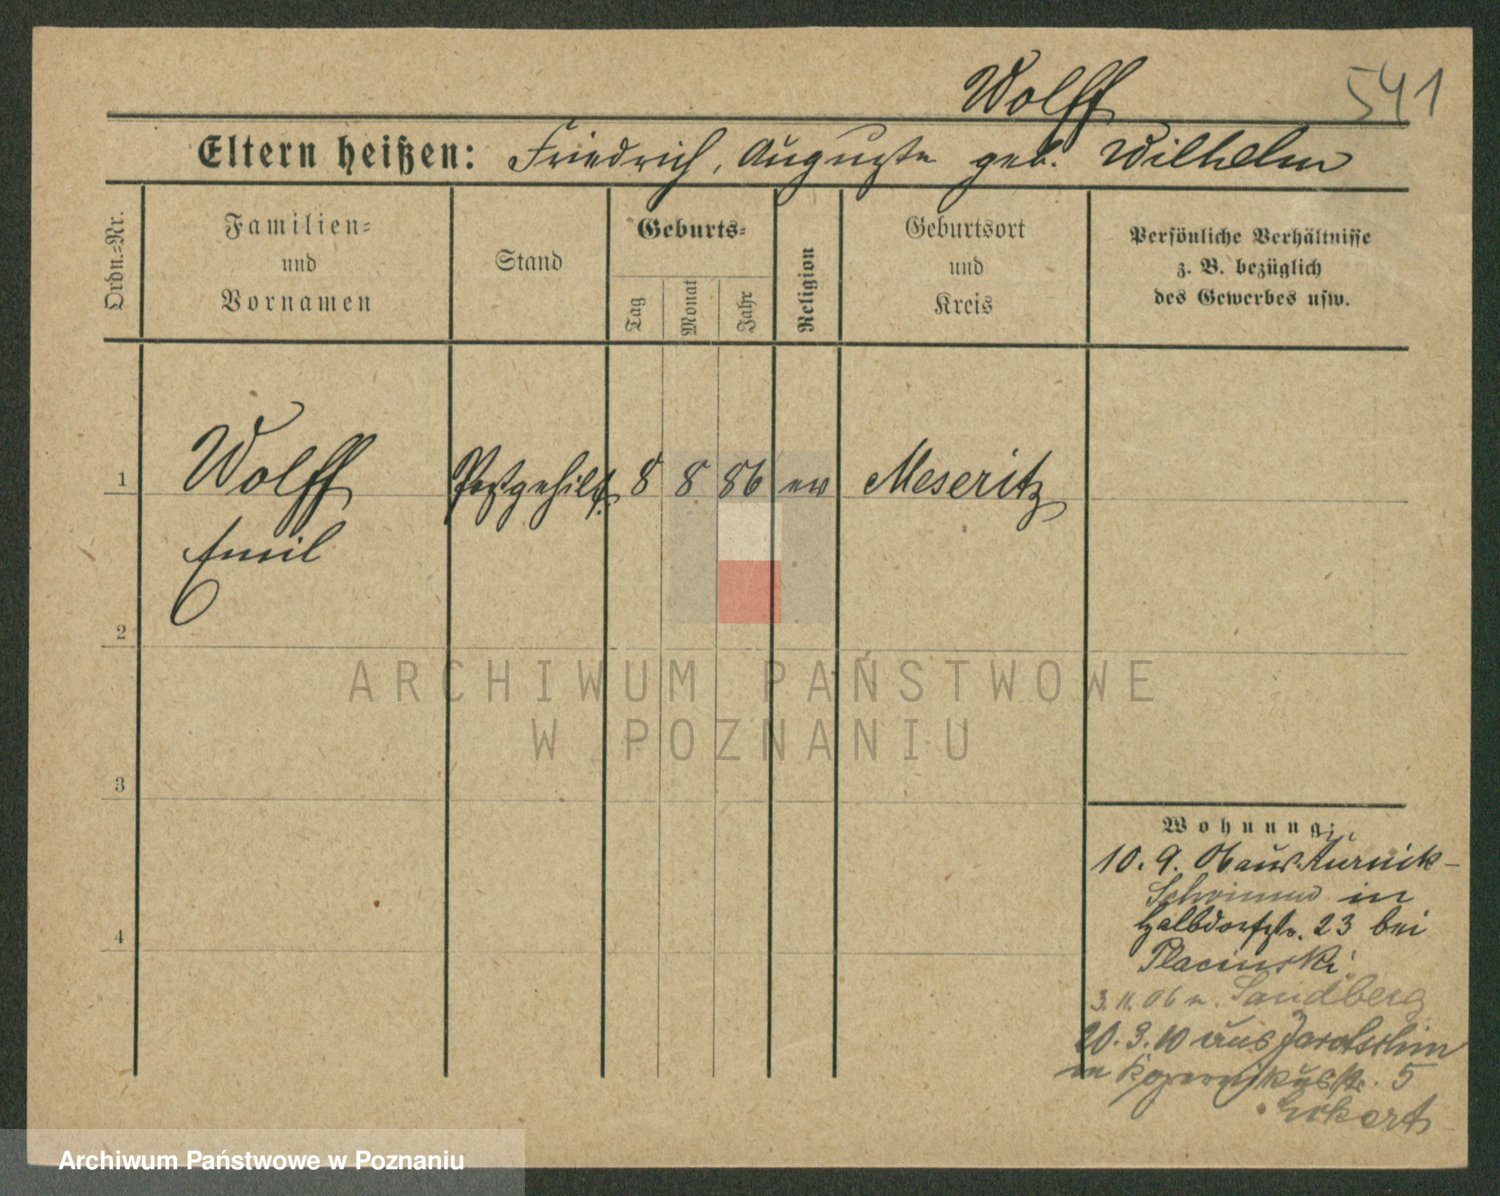 Wolff
541
Eltern heißen: Friedrich, Auguste geb. Wilhelm
Ordn.-Nr.
Familien-
und
Vornamen
Stand
Geburts-
Tag
Monat
Jahr
Religion
Geburtsort
und
Kreis
Persönliche Verhältnisse
z. B. bezüglich
des Gewerbes usw.
1
Wolff
Emil
Postgehilfe
8
8
86
ev
Meseritz
2
ARCHIWUM PAŃSTWOWE
W POZNANIU
3
4
Wohnung:
10. 9. 06 aus Kurnik-
in
Halbdorfstr. 23 bei
Placinski
3. 11. 06 n. Sandberg
20. 3. 10 aus Jarotschin
in Kopernikusstr. 5
Eckert
Archiwum Państwowe w Poznaniu